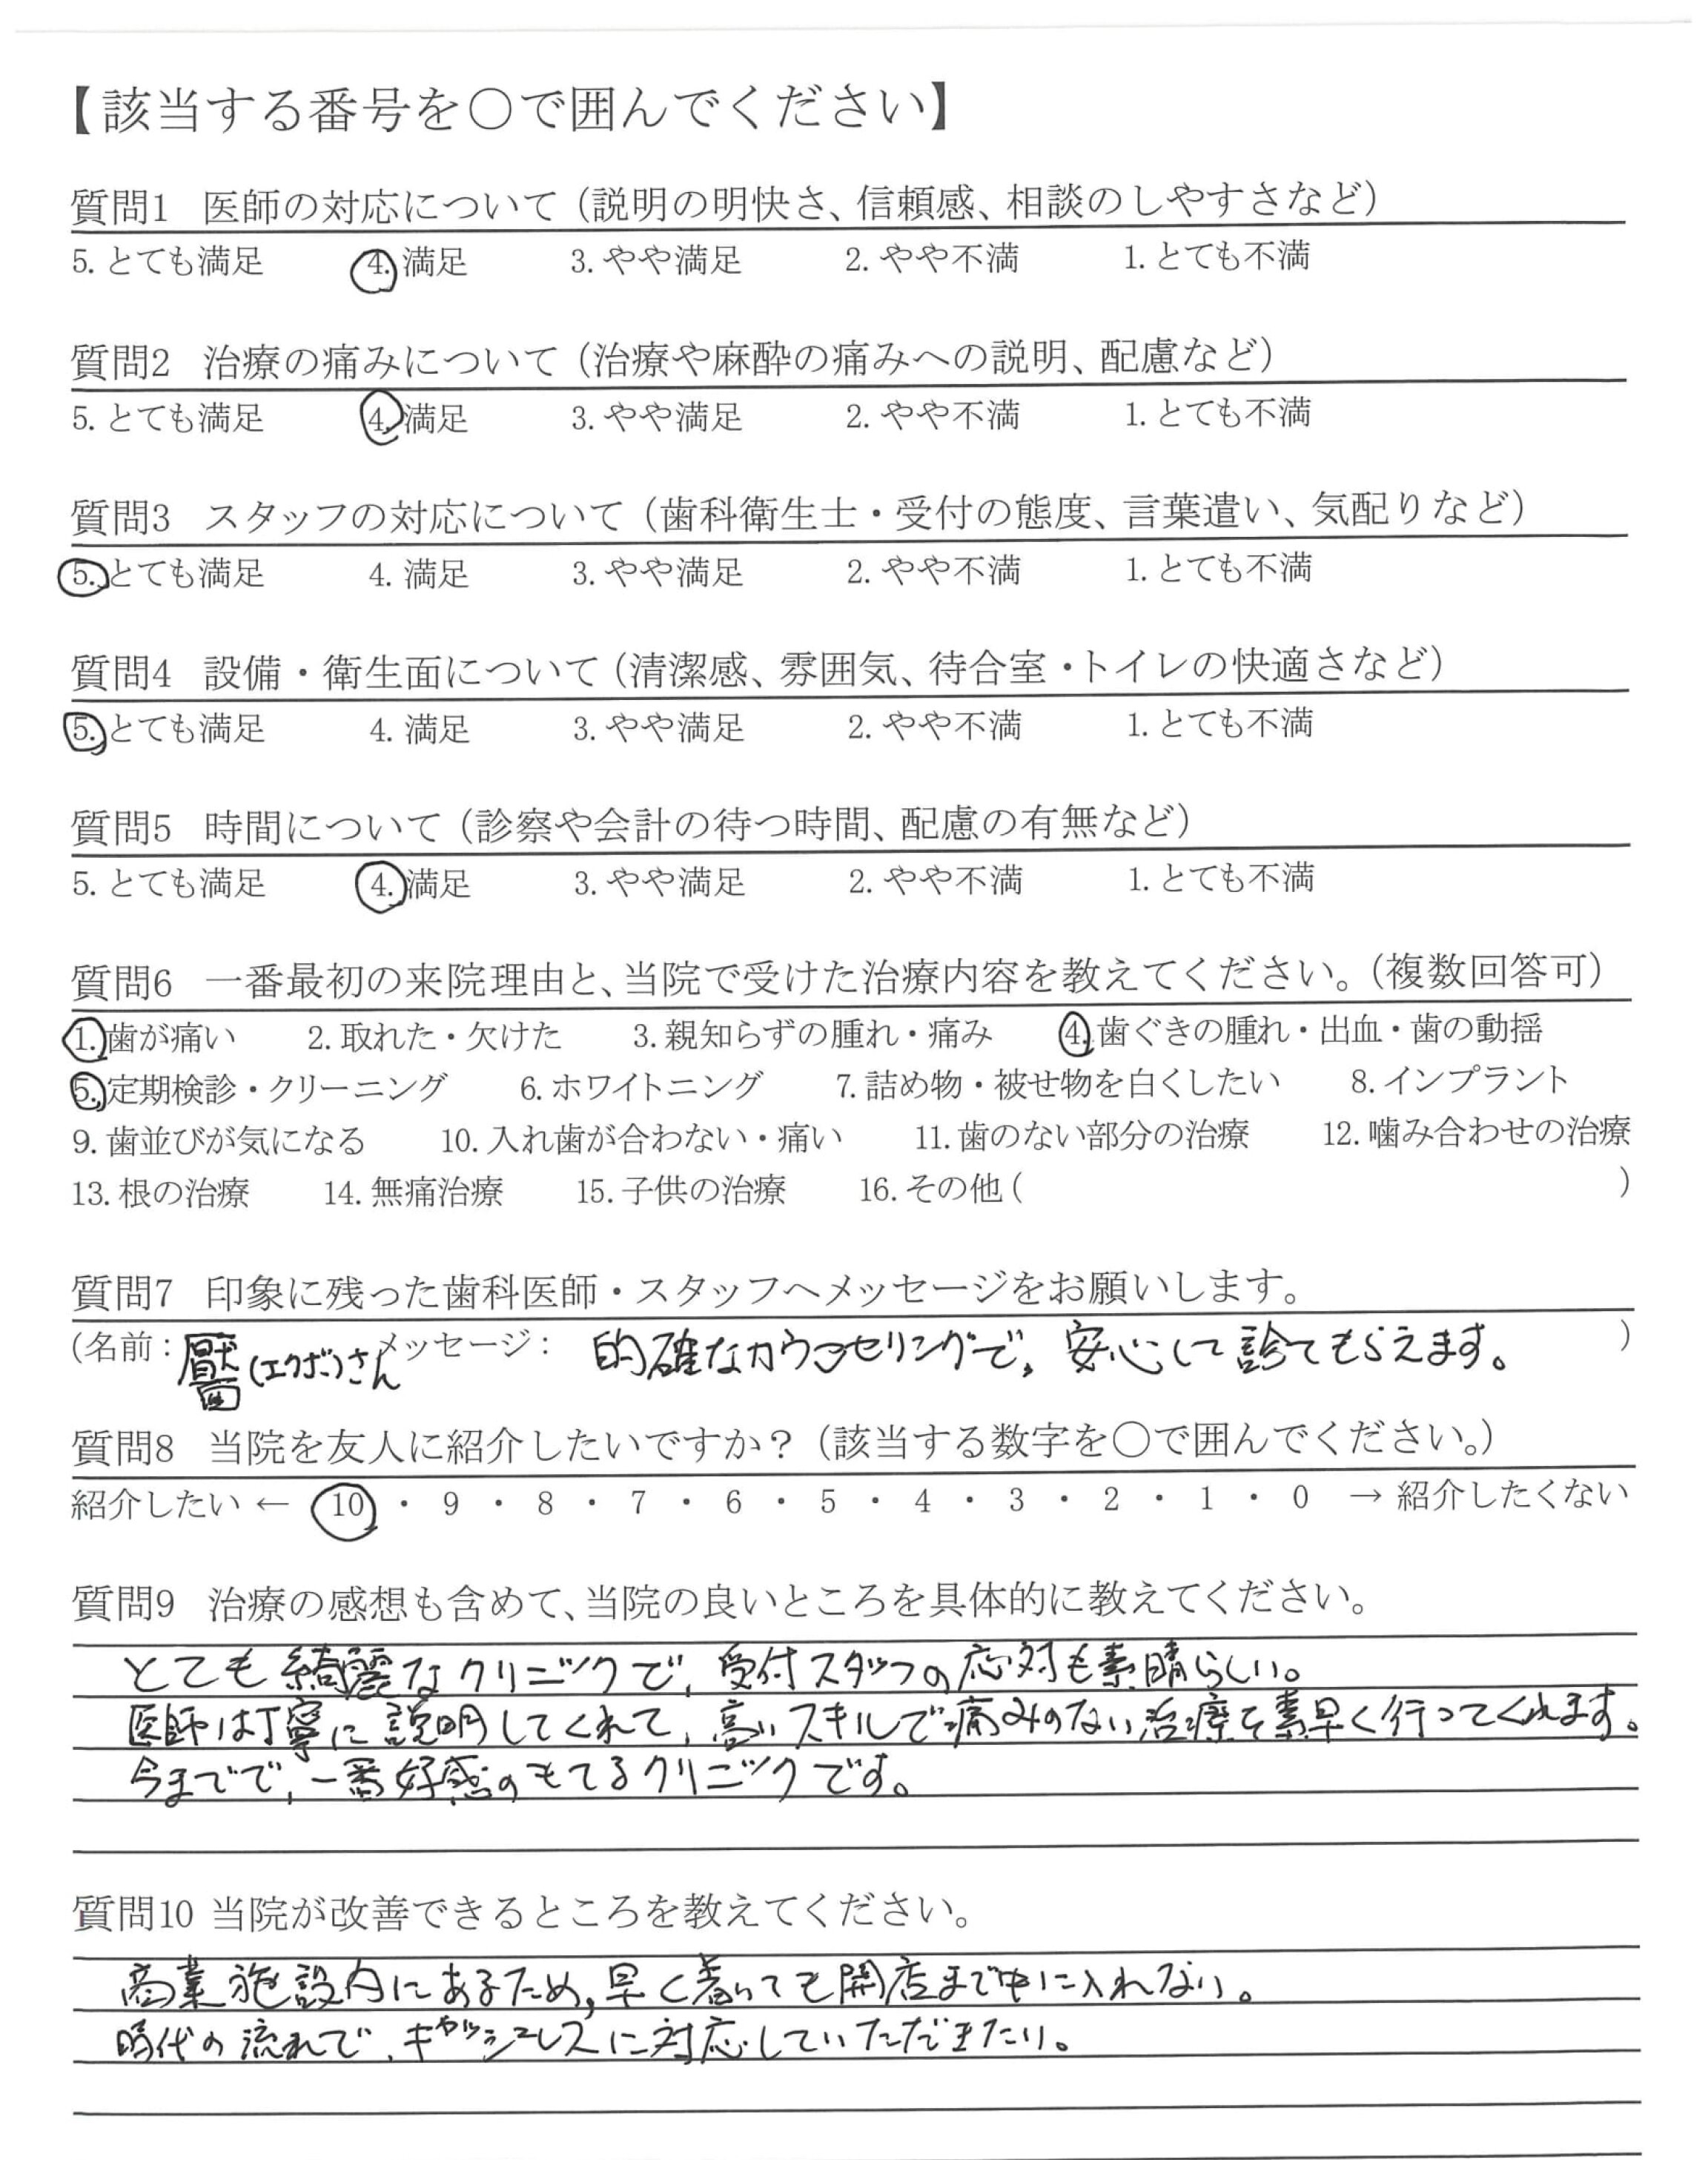 【該当する番号を○で囲んでください】
質問1 医師の対応について（説明の明快さ、信頼感、相談のしやすさなど）
5. とても満足 4. 満足 3. やや満足 2. やや不満 1. とても不満
質問2 治療の痛みについて（治療や麻酔の痛みへの説明、配慮など）
5. とても満足 4. 満足 3. やや満足 2. やや不満 1. とても不満
質問3 スタッフの対応について（歯科衛生士・受付の態度、言葉遣い、気配りなど）
5. とても満足 4. 満足 3. やや満足 2. やや不満 1. とても不満
質問4 設備・衛生面について（清潔感、雰囲気、待合室・トイレの快適さなど）
5. とても満足 4. 満足 3. やや満足 2. やや不満 1. とても不満
質問5 時間について（診察や会計の待つ時間、配慮の有無など）
5. とても満足 4. 満足 3. やや満足 2. やや不満 1. とても不満
質問6 一番最初の来院理由と、当院で受けた治療内容を教えてください。（複数回答可）
1. 歯が痛い 2. 取れた・欠けた 3. 親知らずの腫れ・痛み 4. 歯ぐきの腫れ・出血・歯の動揺
5. 定期検診・クリーニング 6. ホワイトニング 7. 詰め物・被せ物を白くしたい 8. インプラント
9. 歯並びが気になる 10. 入れ歯が合わない・痛い 11. 歯のない部分の治療 12. 噛み合わせの治療
13. 根の治療 14. 無痛治療 15. 子供の治療 16. その他（ ）
質問7 印象に残った歯科医師・スタッフへメッセージをお願いします。
（名前：靨(エクボ)さん メッセージ： 的確なカウンセリングで、安心して診てもらえます。 ）
質問8 当院を友人に紹介したいですか？（該当する数字を○で囲んでください。）
紹介したい ← 10 ・ 9 ・ 8 ・ 7 ・ 6 ・ 5 ・ 4 ・ 3 ・ 2 ・ 1 ・ 0 → 紹介したくない
質問9 治療の感想も含めて、当院の良いところを具体的に教えてください。
とても綺麗なクリニックで、受付スタッフの応対も素晴らしい。
医師は丁寧に説明してくれて、高いスキルで痛みのない治療を素早く行ってくれます。
今までで、一番好感のもてるクリニックです。
質問10 当院が改善できるところを教えてください。
商業施設内にあるため、早く着いても開店まで中に入れない。
時代の流れで、キャッシュレスに対応していただきたい。